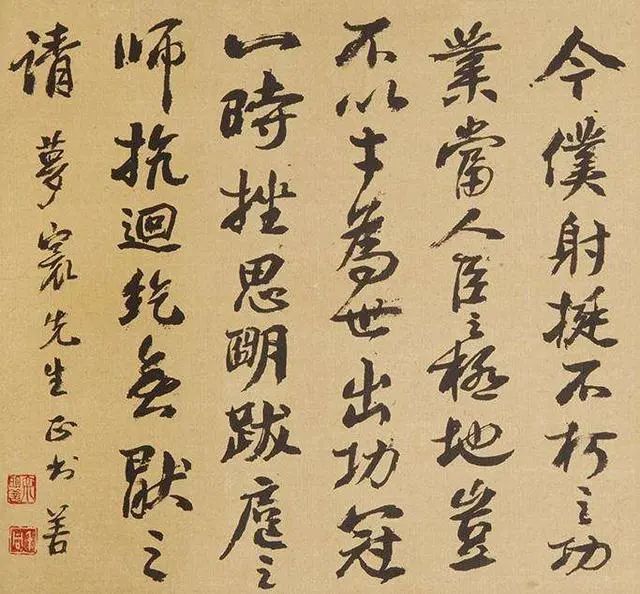 今僕射挺不朽之功
業當人臣之極地豈
不以才為世出功冠
一時挫思明跋扈之
師抗迴紇無猒之
請
夢寰先生正 善